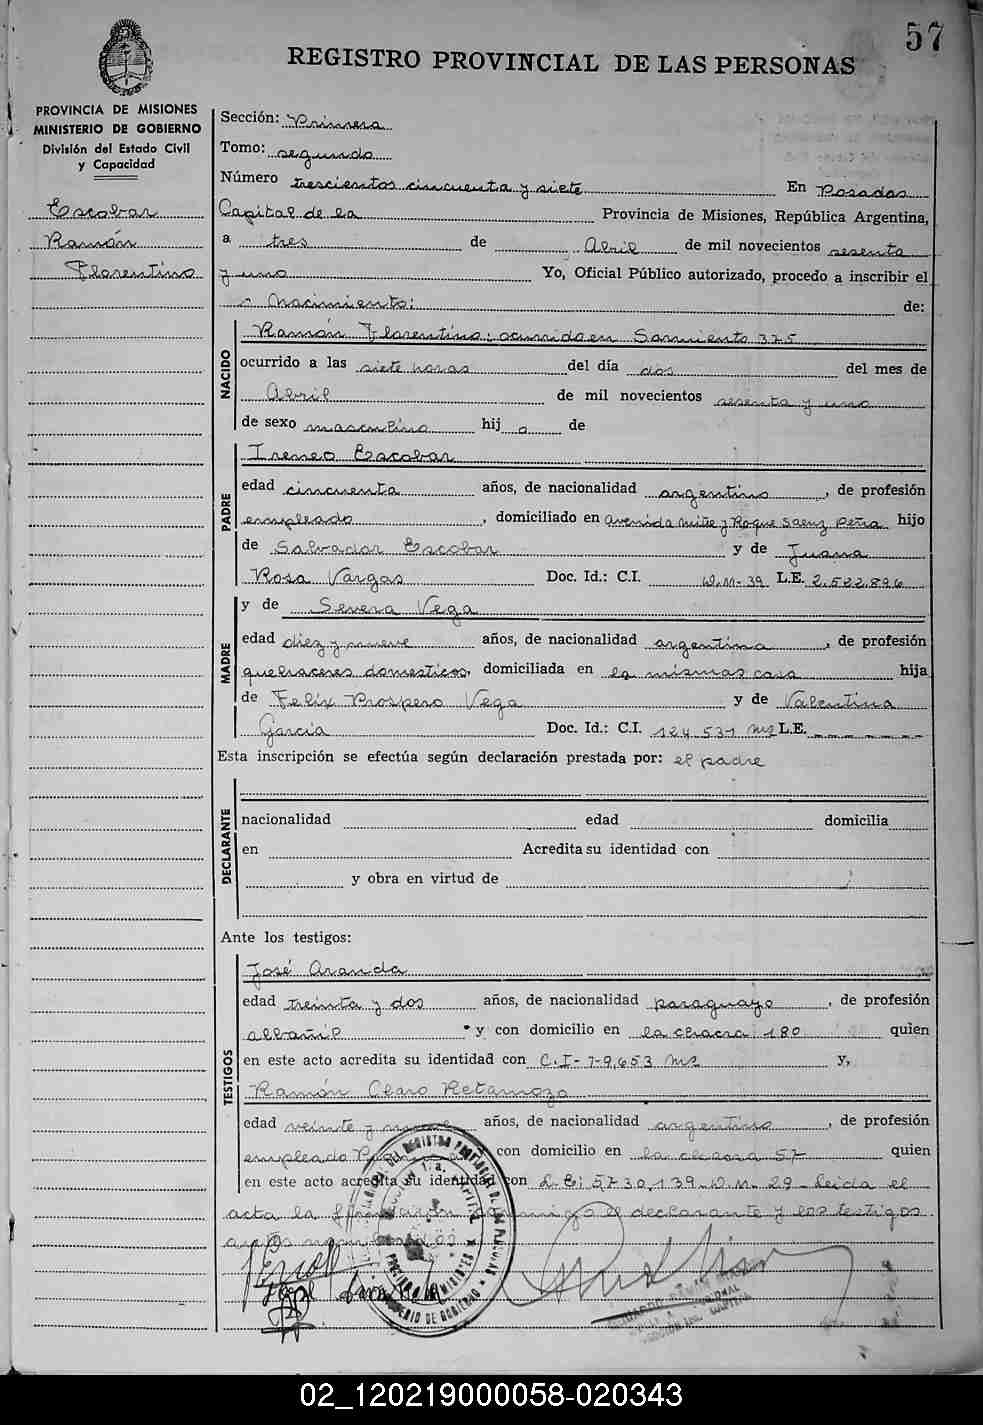 57
REGISTRO PROVINCIAL DE LAS PERSONAS
PROVINCIA DE MISIONES
MINISTERIO DE GOBIERNO
División del Estado Civil
y Capacidad
Escobar
Ramón
Florentino
Sección: Primera
Tomo: segundo
Número trescientos cincuenta y siete En Posadas
Capital de la Provincia de Misiones, República Argentina,
a tres de Abril de mil novecientos sesenta
y uno Yo, Oficial Público autorizado, procedo a inscribir el
Nacimiento: de:
NACIDO
Ramón Florentino: ocurrido en Sarmiento 325
ocurrido a las siete horas del día dos del mes de
Abril de mil novecientos sesenta y uno
de sexo masculino hij o de
PADRE
Ireneo Escobar
edad cincuenta años, de nacionalidad argentino, de profesión
empleado, domiciliado en avenida Mitre y Roque Saenz Peña hijo
de Salvador Escobar y de Juana
Rosa Vargas Doc. Id.: C.I. D.M-39 L.E. 2.522.896
MADRE
y de Severa Vega
edad diez y nueve años, de nacionalidad argentina, de profesión
quehaceres domesticos, domiciliada en la misma casa hija
de Felix Prospero Vega y de Valentina
García Doc. Id.: C.I. 124.531 Ms L.E.
Esta inscripción se efectúa según declaración prestada por: el padre
DECLARANTE
nacionalidad edad domicilia
en Acredita su identidad con
y obra en virtud de
Ante los testigos:
TESTIGOS
José Aranda
edad treinta y dos años, de nacionalidad paraguayo, de profesión
albañil y con domicilio en la chacra 180 quien
en este acto acredita su identidad con C.I-79.653 Ms y,
Ramón Claro Retamozo
edad veinte y nueve años, de nacionalidad argentino, de profesión
empleado con domicilio en la chacra 57 quien
en este acto acredita su identidad con L.E: 5.730.139-D.M-29-Leida el
acta la firman conmigo el declarante y los testigos
antes nombrados
02_120219000058-020343